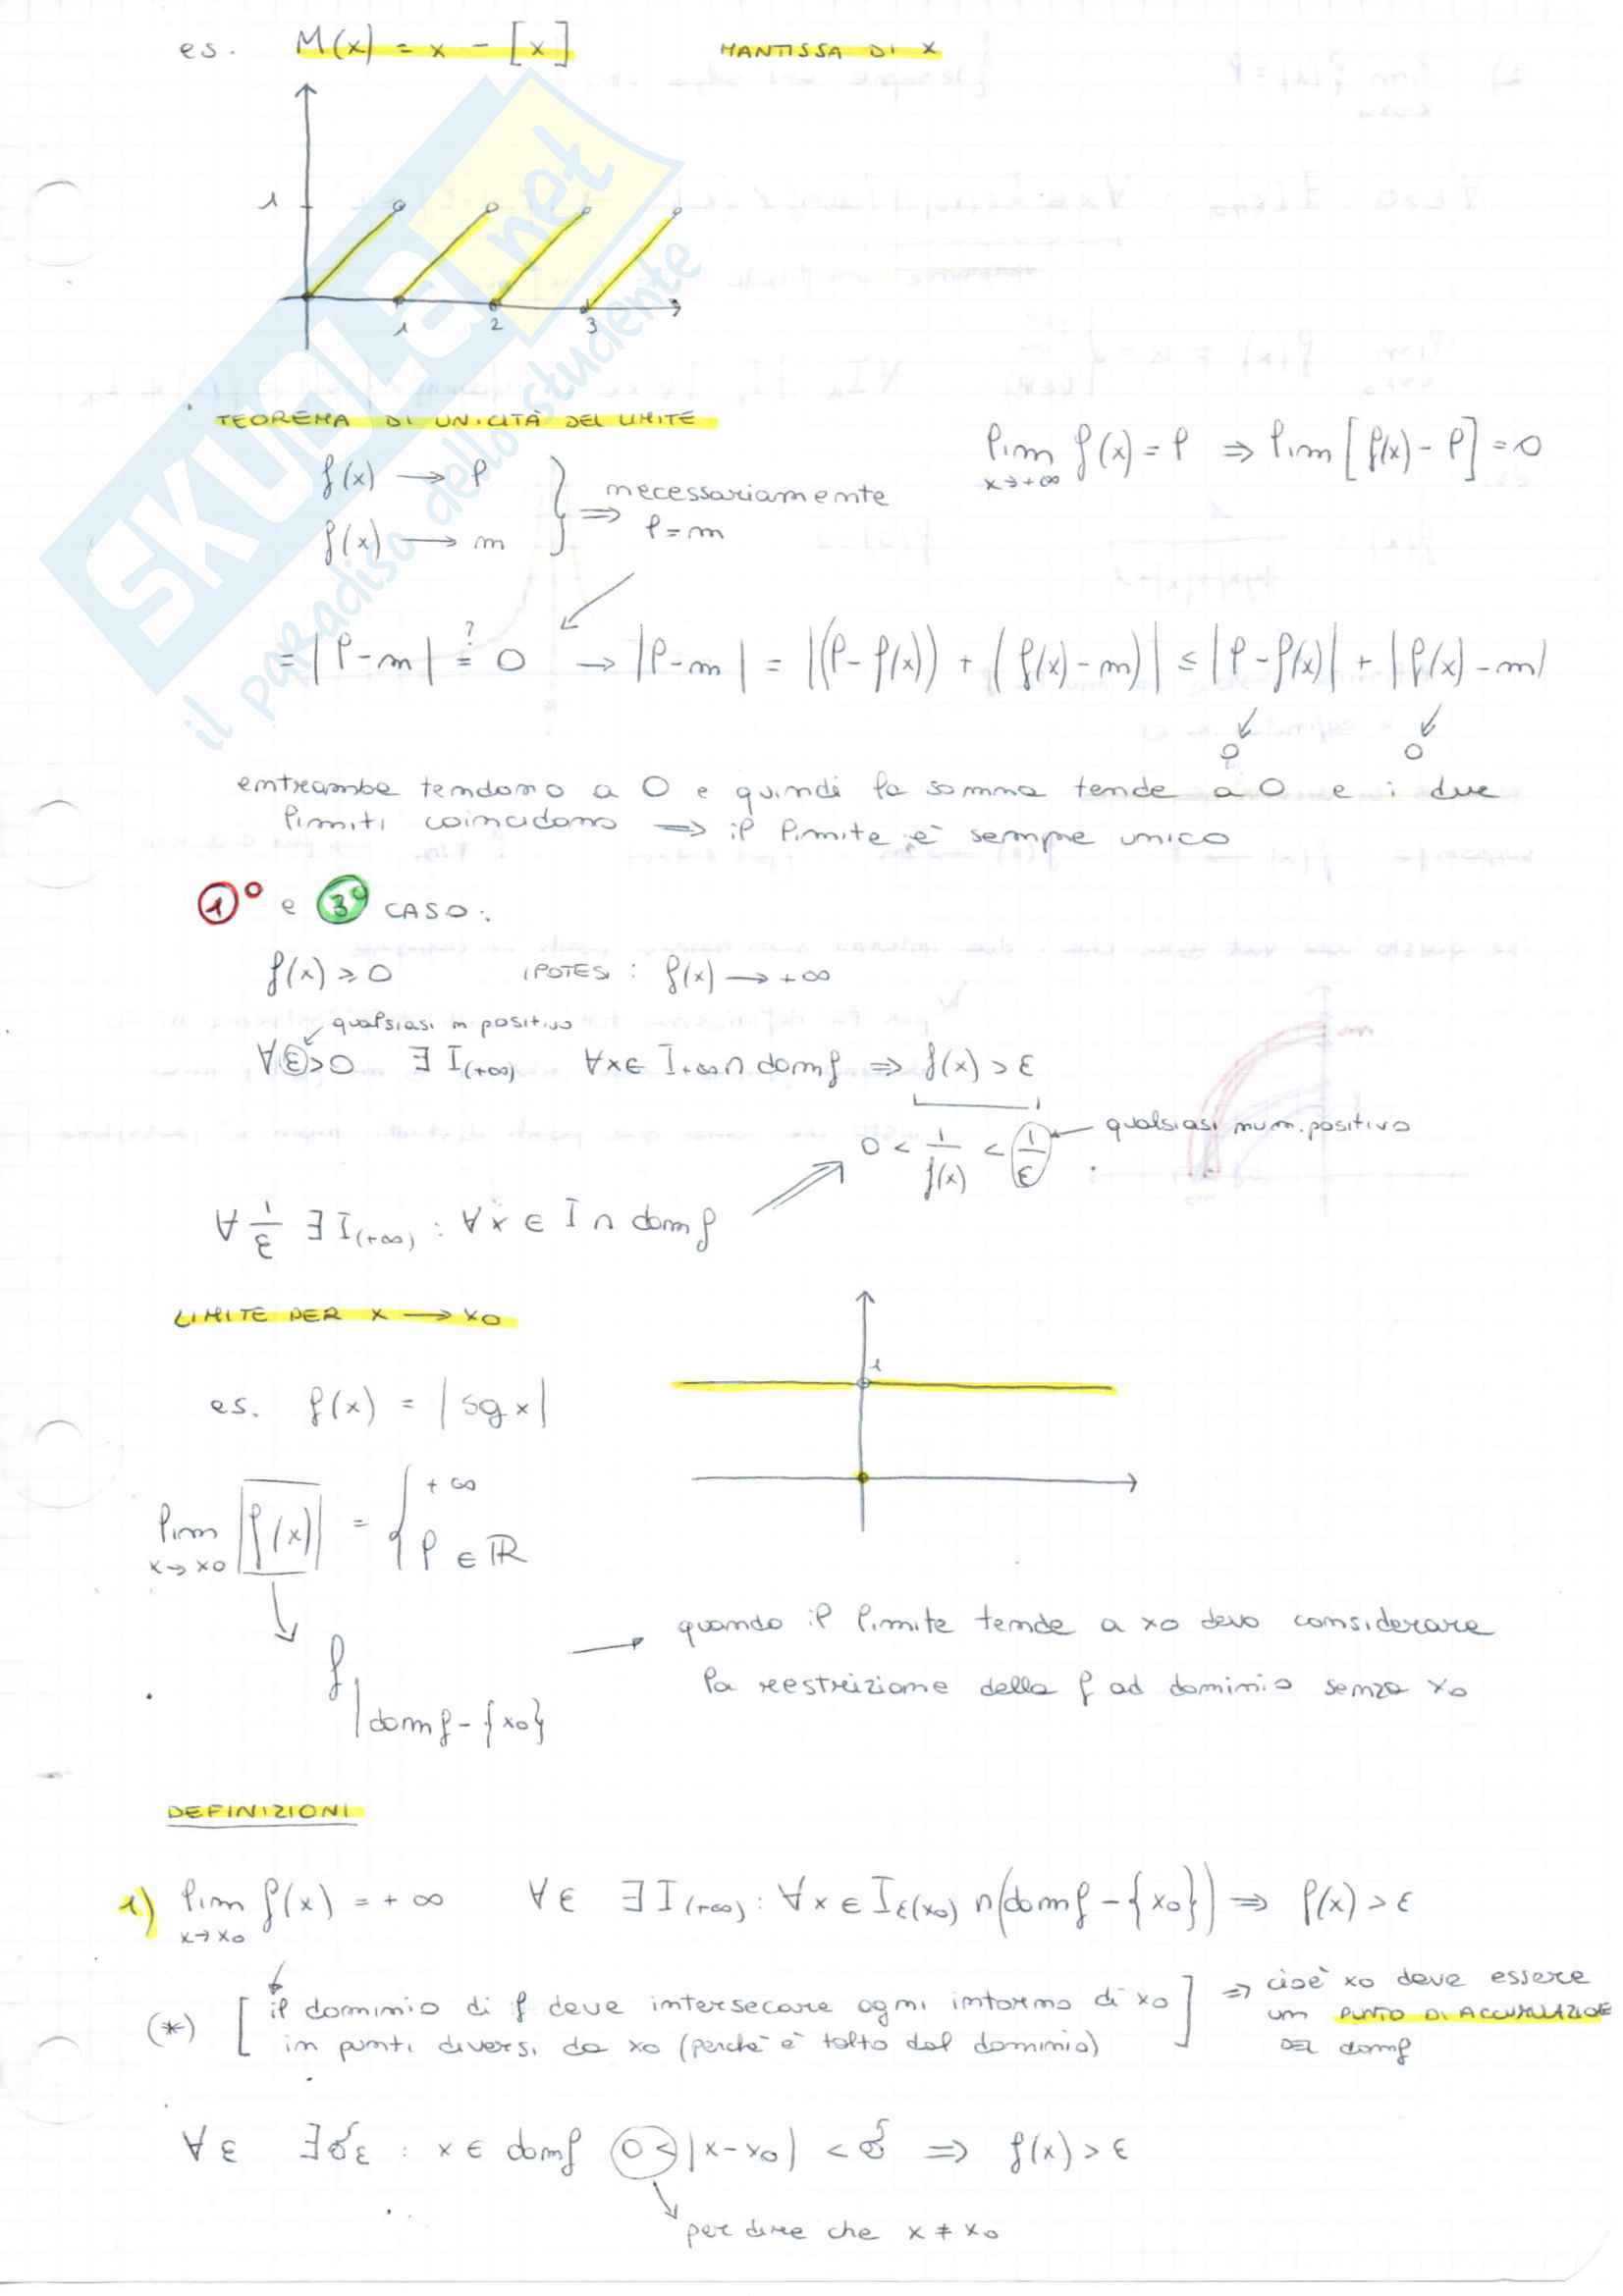 es. M(x) = x - [x] MANTISSA DI X
1
1 2 3
SKUOLA.net
il paradiso dello studente
TEOREMA DI UNICITÀ DEL LIMITE
lim f(x) = l ⇒ lim [f(x) - l] = 0
x→+∞
f(x) → l
f(x) → m
} ⇒ necessariamente
l = m
= |l-m| ?= 0 → |l-m| = |(l-f(x)) + (f(x)-m)| ≤ |l-f(x)| + |f(x)-m|
0 0
entrambe tendono a 0 e quindi la somma tende a 0 e i due
limiti coincidono ⇒ il limite è sempre unico
1° e 3° CASO:
f(x) ≥ 0 IPOTESI: f(x) → +∞
qualsiasi n positivo
∀ε>0 ∃ I(+∞) ∀x∈ I+∞ ∩ domf ⇒ f(x) > ε
0 < 1/f(x) < 1/ε ← qualsiasi num. positivo
∀ 1/ε ∃ I(+∞) : ∀x ∈ I ∩ domf
LIMITE PER X → X0
1
es. f(x) = |sg x|
lim |f(x)| = { +∞
x→x0 l ∈ ℝ
f|domf-{x0}
→ quando il limite tende a x0 devo considerare
la restrizione della f ad dominio senza x0
DEFINIZIONI
1) lim f(x) = +∞ ∀ε ∃ I(+∞) : ∀x ∈ Iε(x0) ∩ (domf - {x0}) ⇒ f(x) > ε
x→x0
(*) [ il dominio di f deve intersecare ogni intorno di x0
in punti diversi da x0 (perché è tolto dal dominio) ]
⇒ cioè x0 deve essere
un PUNTO DI ACCUMULAZIONE
DEL domf
∀ε ∃δε : x ∈ domf 0 < |x-x0| < δ ⇒ f(x) > ε
per dire che x ≠ x0